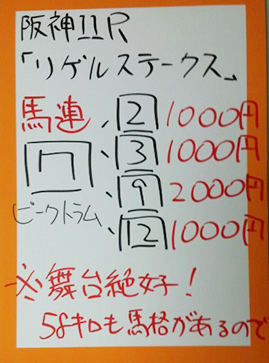 阪神11R
「リゲルステークス」
馬連 2 1000円
7 3 1000円
ビークトラム 9 2000円
12 1000円
※舞台絶好！
58キロも馬格があるので